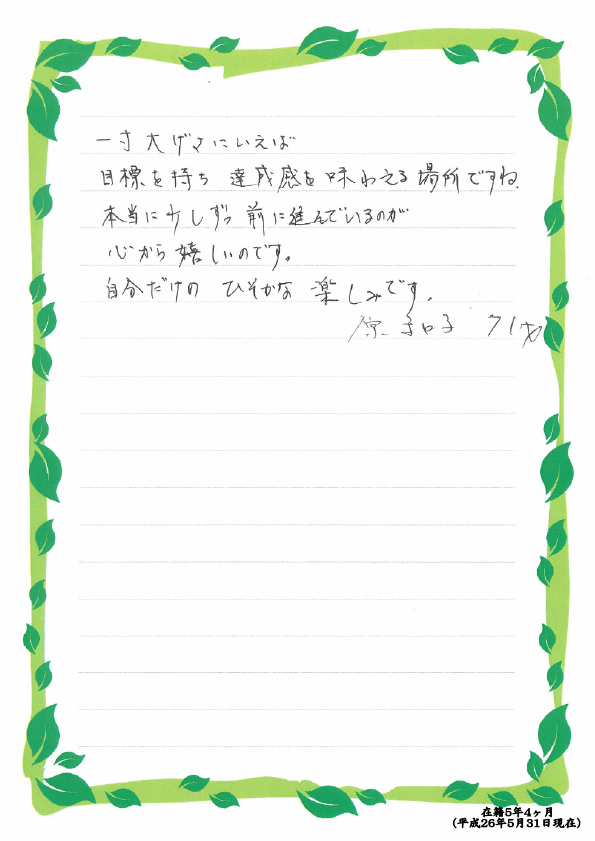 一寸大げさにいえば
目標を持ち 達成感を味わえる場所ですね.
本当に少しずつ前に進んでいるのが
心から嬉しいのです。
自分だけの ひそかな 楽しみです.
原 和子 71才
在籍5年4ヶ月
(平成26年5月31日現在)